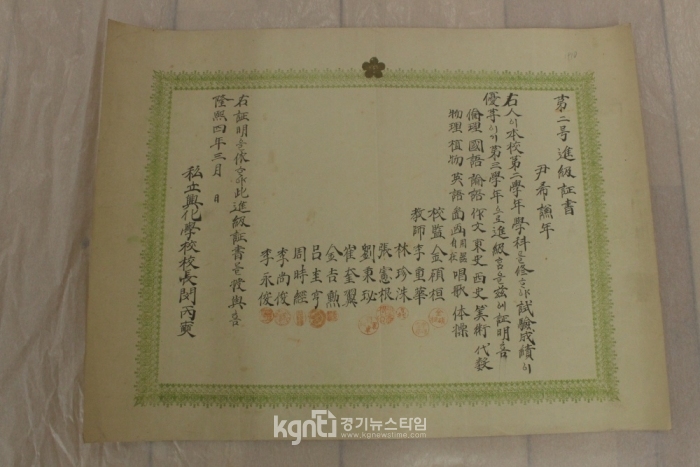 第二号進級証書
尹希謙 年
右人이本校第二學年學科를修하야試驗成績이
優等이기第三學年으로進級하믈玆에証明홈
倫理 國語 論語 作文 東史 西史 算術 代数
物理 植物 英語 圖画 唱歌 体操
校監 金顯桓
教師 李重華
林珍洙
張憲根
劉秉珌
崔奎翼
金吉勲
呂圭亨
周時經
李尚俊
李永俊
右証明을依하야此進級証書를發與홈
隆熙四年三月 日
私立興化學校校長閔丙奭
kgnt 경기뉴스타임
www.kgnewstime.com